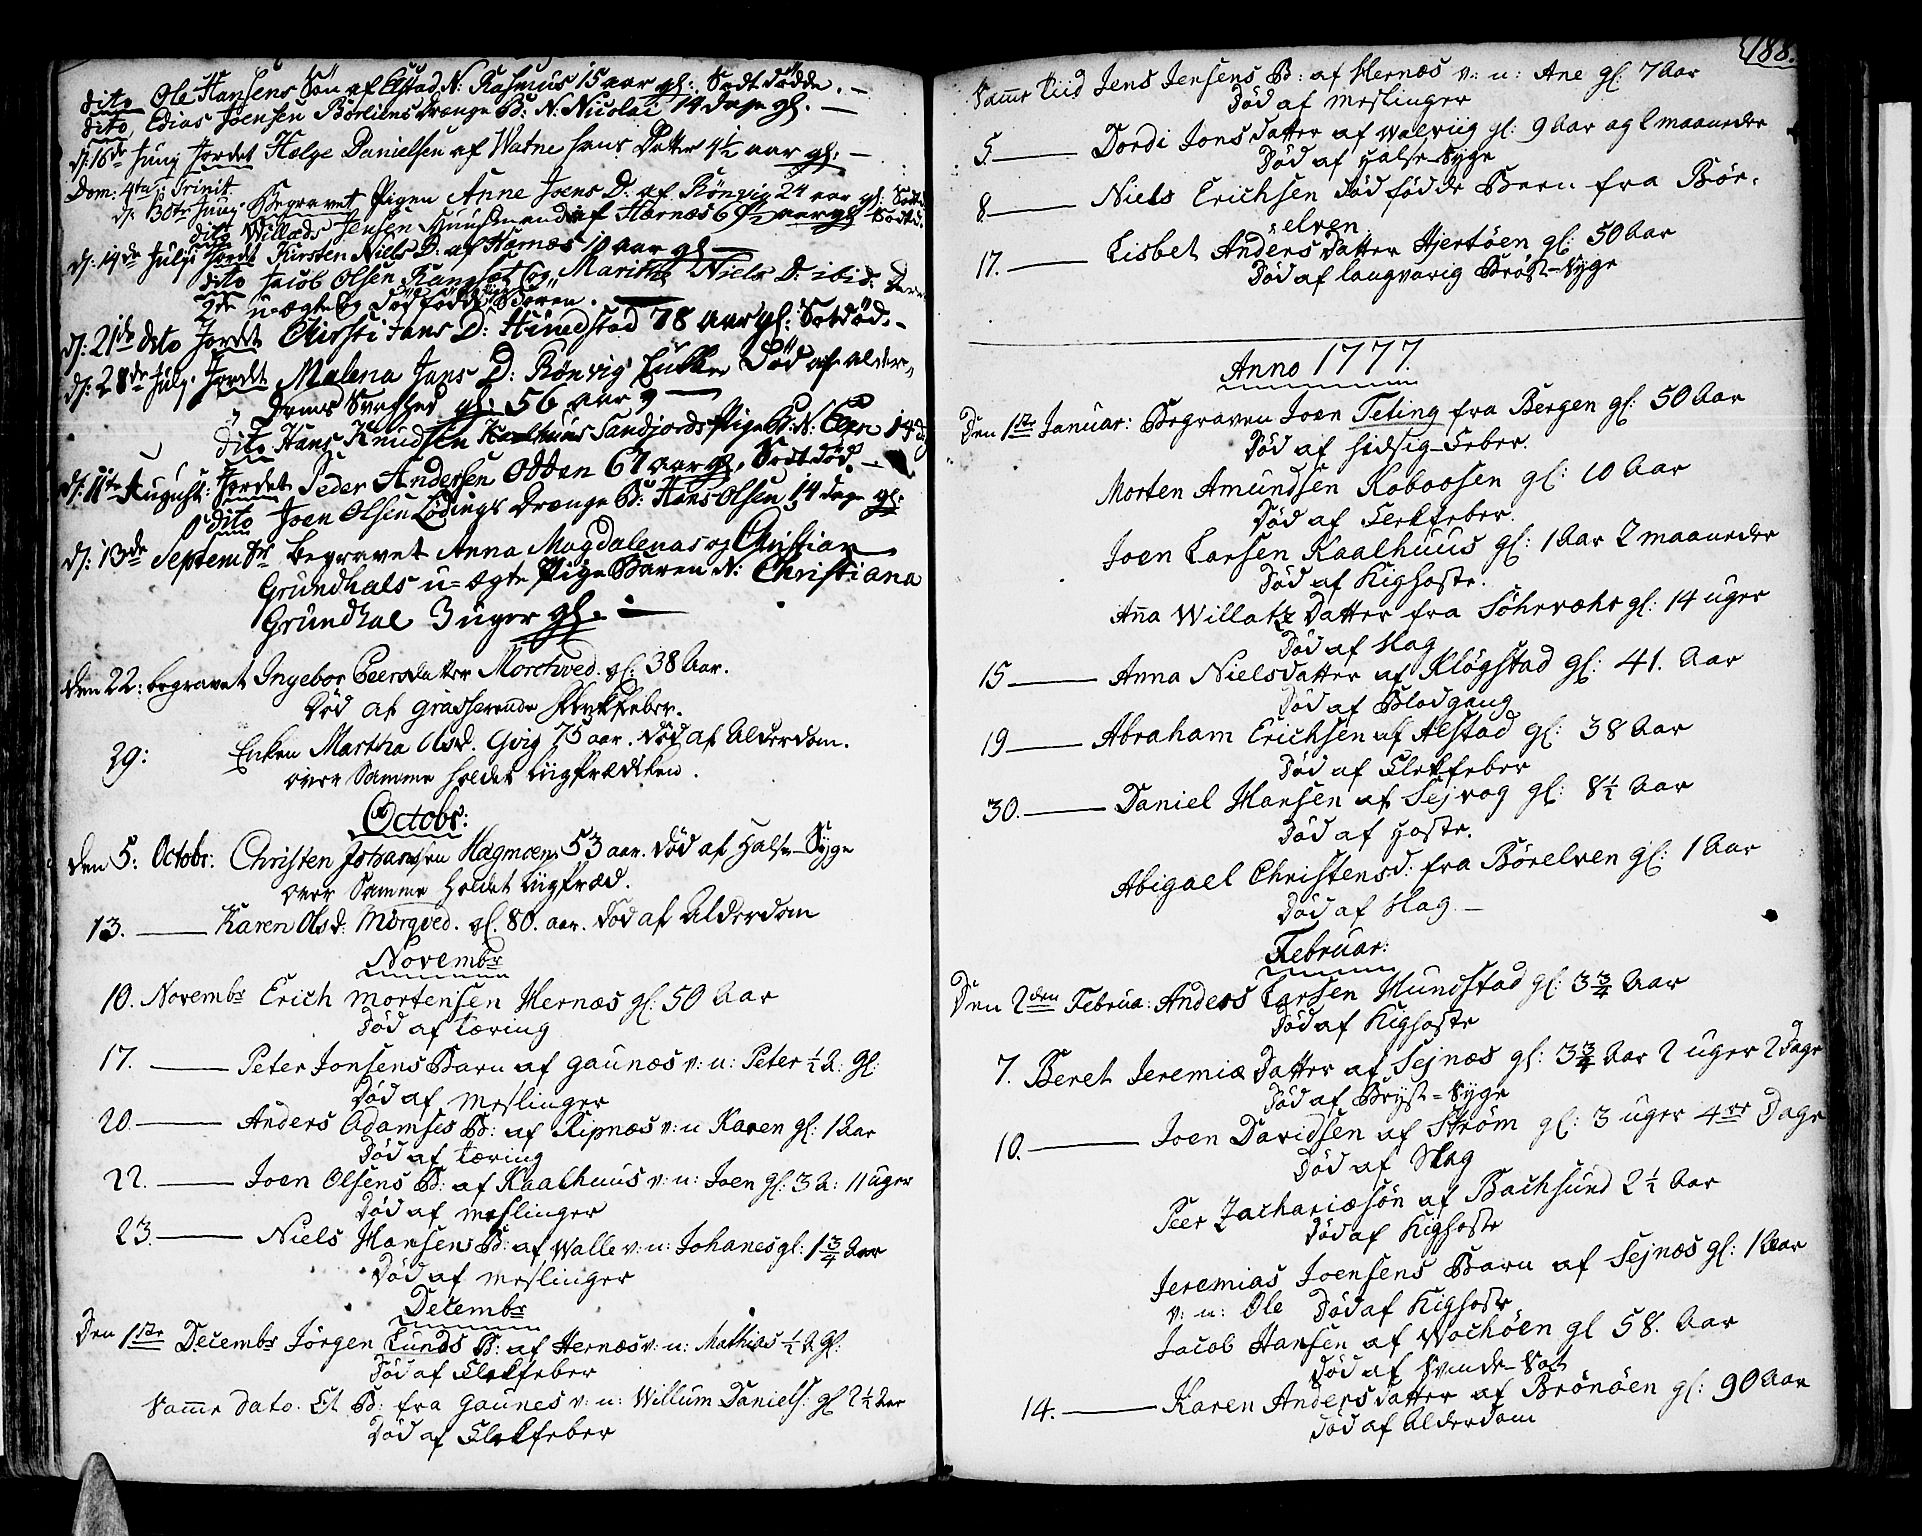 dito Ole Hansens Søn af Alstad N: Rasmus 15 aar gl:
dito, Elias Joensen Børliens Drenge B: N: Nicolai 14 dage gl. —
d: 16de Junj Jordet Helge Danielsen af Watne hans Datter 4½ aar gl: —
Dom: 4ta: Trinit.
d: 30te Junj: Begravet Pigen Anne Joens D. af Rönvig 24 aar gl:
dito Willads Jensen Huusmand af Hærnæs 69 aar gl
d: 14de Julji Jordet Kirsten Niels D: af Hærnæs 10 aar gl —
dito Jacob Olsen og Marithe Niels D. ibid:
2de u-ægte og dödfödde Bören. —
d: 21de dito Jordet Chirsti Jans D: Hundstad 78 aar gl: Sotdöd. –
d: 28de Julj: Jordet Malena Jans D: Rönvig Enke Död af alder-
Doms Svaghed gl: 56 aar —
dito Hans Knudsen Sandjords Pige B: N: Elen 14 d
d: 11te August: Jordet Peder Andersen Otten 67 aar gl, Sotdöd. —
dito Joen Olsen Lödings Drenge B: Hans Olsen 14 dage gl:
d: 13de Septembr begravet Anna Magdalenas og Christian
Grundhals u-ægte Pige Baren N: Christiana
Grundhal 3 uger gl. —
den 22: begravet Ingebor Peersdatter Morchved. gl: 38 Aar.
Död af grasserende Flekfeber.
29: Enken Martha Olsd. Gvig 75 aar. död af Alderdom.
over Samme holdet Liigprædiken.
Octobr:
den 5: Octobr. Christen Johansen Hagmoen 53 aar. död af Halse-Syge
over Samme holdet Liigpræd.
13. — Karen Olsd: Mörqved. gl. 80. aar. död af Alderdom
Novembr
10. Novembr Erich Mortensen Hernæs gl: 50 Aar
Död af Tæring
17. — Peter Jonsens Barn af Gaunæs v: n: Peter ½ A: gl:
Död af Meslinger
20. — Anders Adamses B: af Ripnæs v: n Karen gl: 1 Aar
Död af Tæring
22. — Joen Olsens B: af Kaalhuus v: n: Joen gl: 3 A: 11 uger
Död af Meslinger
23. — Niels Hansens B: af Walle v: n: Johanes gl: 1¾ Aar
Död af Meslinger
Decembr
Den 1ste Decembr Jörgen Lunds B: af Hernæs v: n: Mathias ½ A gl:
Död af Flekfeber
Samme dato. Et B: fra Gaunes v: n: Willum Daniels: gl 2½ Aar
Död af Flekfeber
188.
Samme Tiid Jens Jensens B: af Hernæs v: n: Ane gl: 7 Aar
Död af Meslinger
5. — Dordi Jons Datter af Walviig gl: 9 Aar og 2 maaneder
Död af Halse-Syge
8 — Niels Erichsen död födde Barn fra Bör-
elven
17. — Lisbet Anders Datter Hjertöen gl: 50 Aar
Död af langvarig Bröst-Syge
Anno 1777.
Den 1ste Januar: Begraven Joen Teting fra Bergen gl: 50 Aar
Död af hidsig-Feber.
Morten Amundsen Koboosen gl: 10 Aar
Död af Flekfeber.
Joen Larsen Kaalhuus gl: 1 Aar 2 maaneder
Död af Kighoste.
Aña Willatz Datter fra Söhrvæhr gl: 14 uger
Död af Slag
15 — Anna Nielsdatter af Klögstad gl: 41. Aar
Död af Blodgang
19 — Abraham Erichsen af Alstad gl: 38 Aar
Död af Flekfeber
30. — Daniel Hansen af Sejvog gl: 8½ Aar
Död af Hoste.
Abigael Christensd: fra Börelven gl: 1 Aar
Död af Slag. —
Februar:
Den 2den Februa: Anders Larsen Hundstad gl: 3¾ Aar
Död af Kighoste
7. Beret Jeremiæ Datter af Sejnæs gl: 3¾ Aar 2 uger 2 Dage
Död af Bryst-Syge
10. — Joen Davidsen af Ström gl: 3 uger 4re Dage
Död af Slag
Peer Zachariæsön af Bachsund 2½ Aar
Död af Kighoste
Jeremias Joensens Barn af Sejnæs gl: 1 Aar
v: n: Ole Död af Kighoste
Jacob Hansen af Wochöen gl 58. Aar
Död af Svinde-Sot
14. — Karen Anders datter af Brönöen gl: 90 Aar
Död af Alderdom